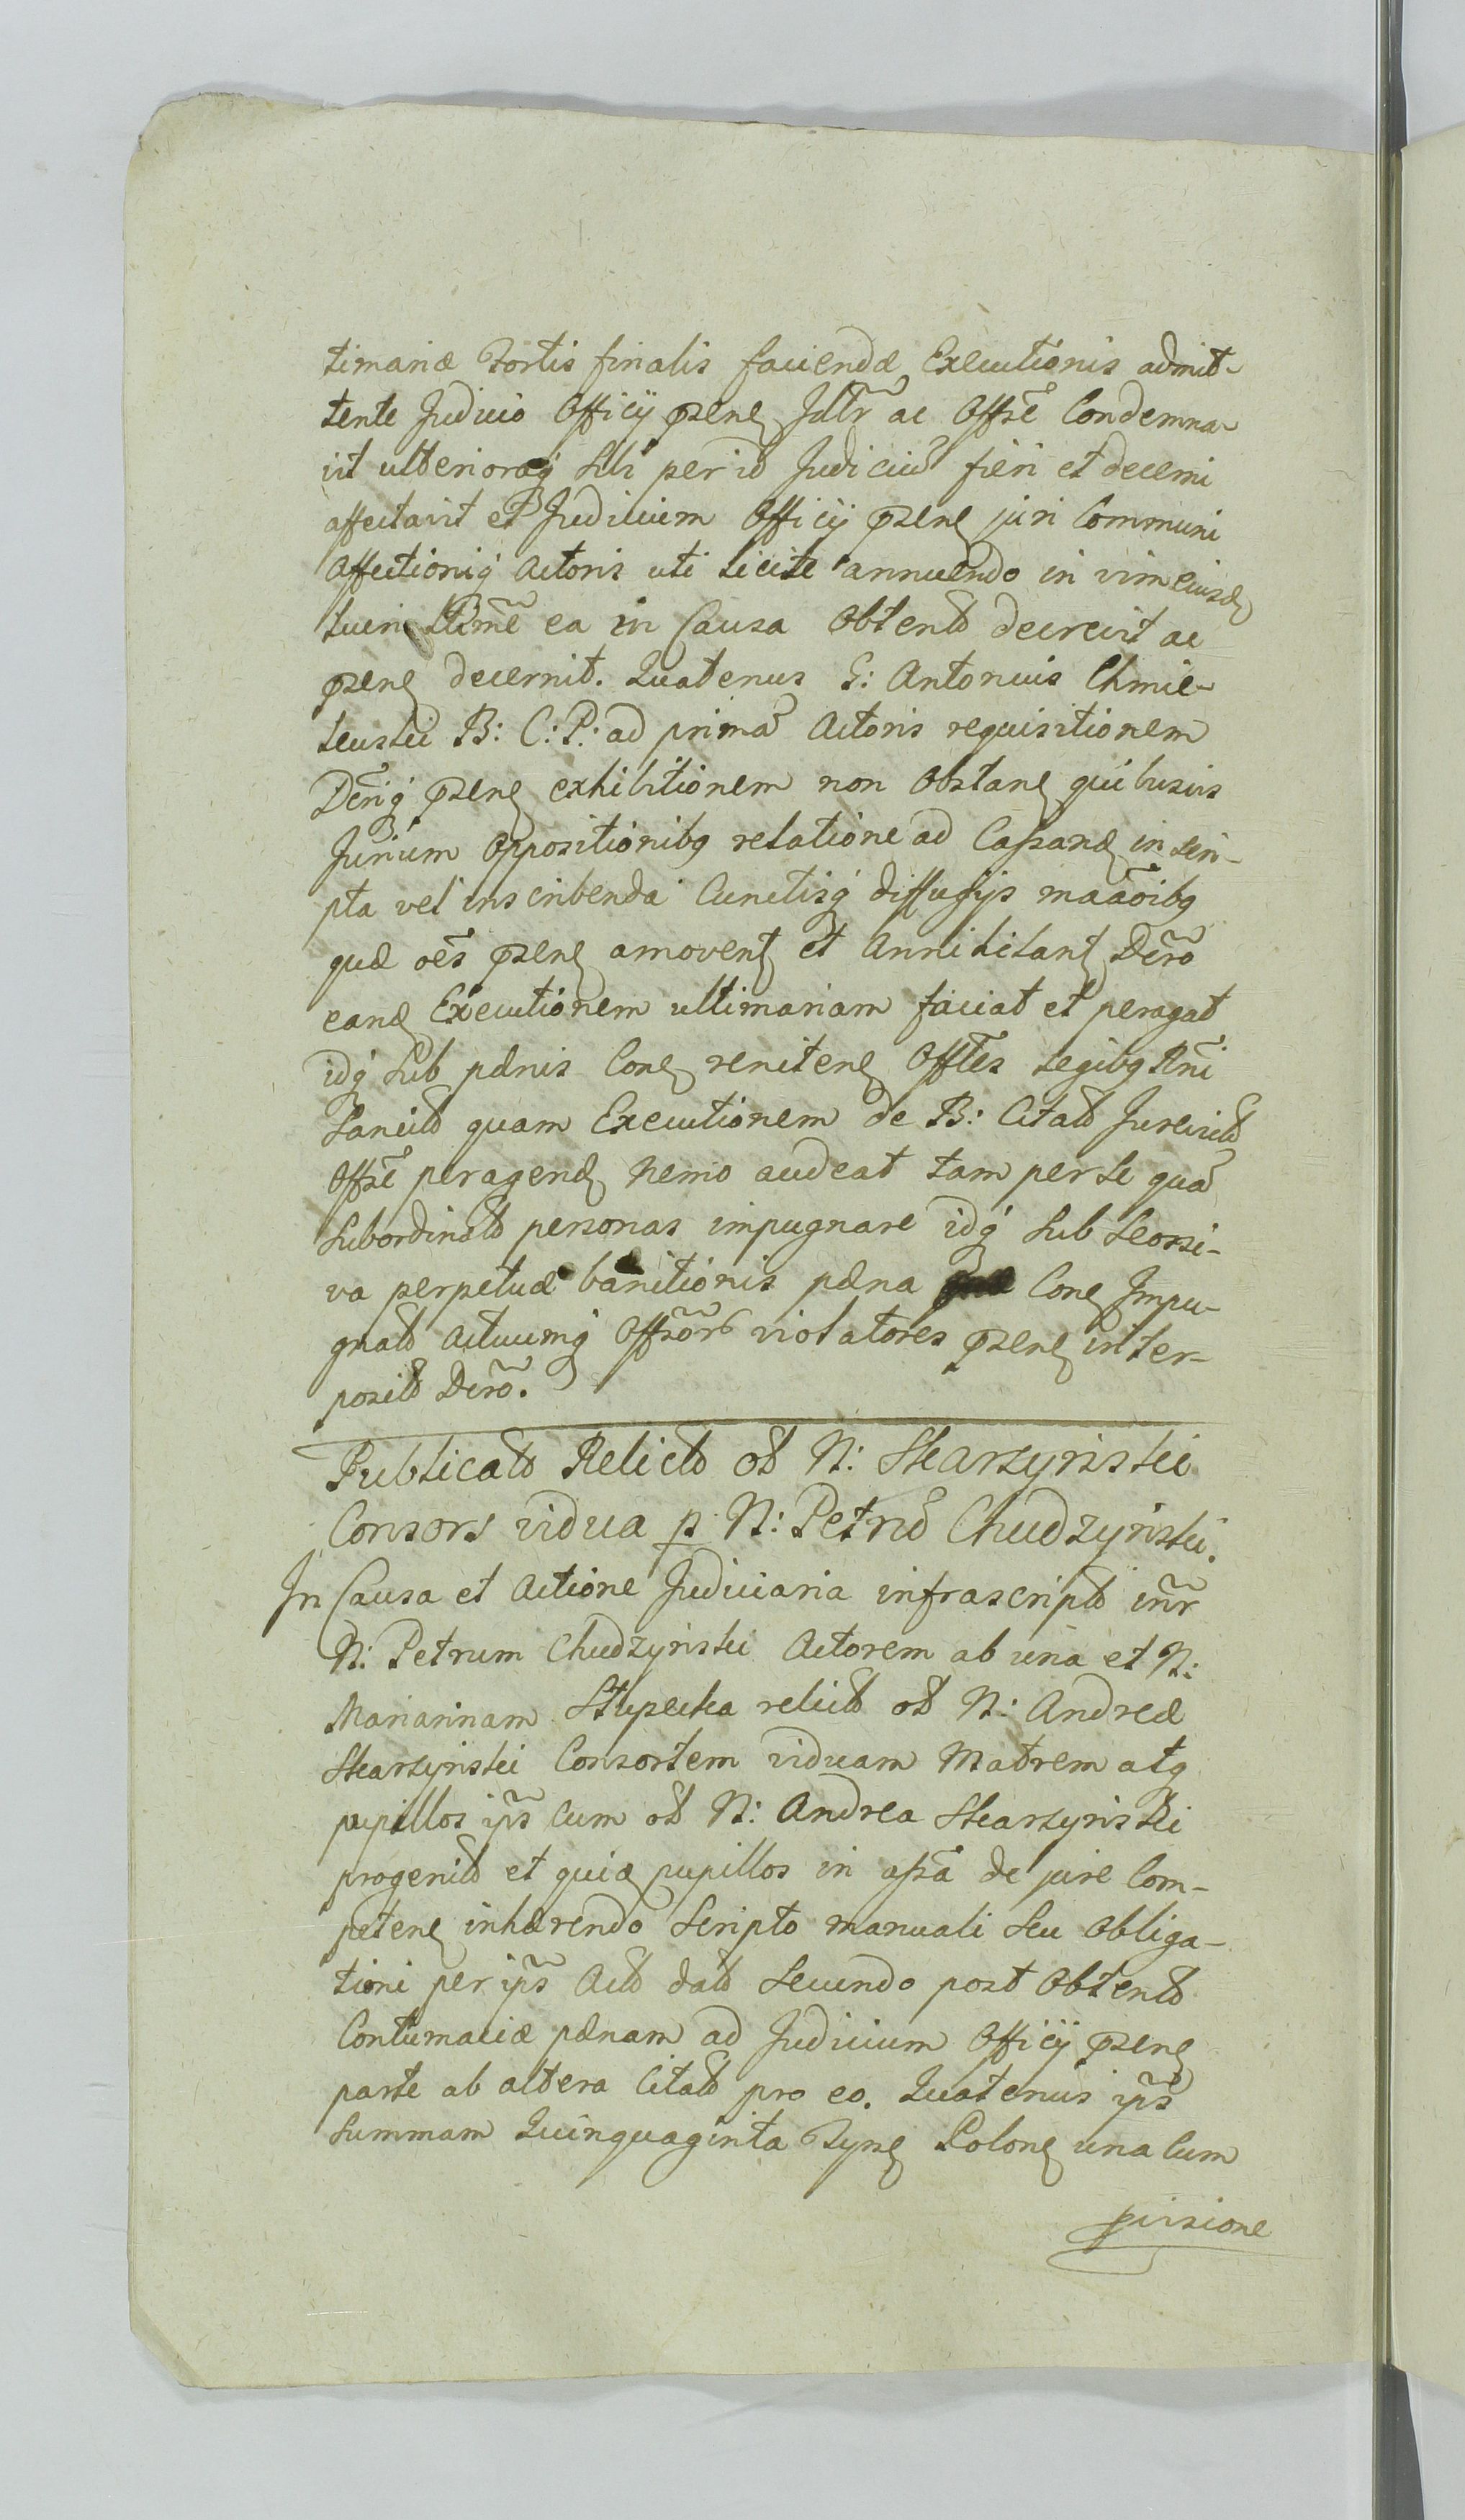 timariæ Fortis finalis faciendæ Executionis admit-
tente Judicio Officij præsen Jdltr ac Offse Condemna-
vit ulterioraq sibi per id Judiciũ fieri et decerni
affectavit et Judicium Officij præsen juri Communi
affectioniq Actoris uti licite annuendo in vim eiusd
Lucri ea in Causa Obtent decrevit ac
præsen decernit. Quatenus G: Antonius Chmie-
lewski B: C: P: ad primã Actoris requisitionem
Dẽriq præsen exhibitionem non Obstan quibusvis
Jurium Oppositionibq relatione ad Cassand in scri-
pta vel inscribenda Cunctisq diffugijs maãoibq
quæ oẽs præsen amovent et Annihilant Dẽro
eand Executionem ultimariam faciat et peragat
idq sub pænis Con reniten Offles legibq Rñi
Sancit quam Executionem de B: Citat Jurevict
Offse peragend Nemo audeat tam per se quã
Subordinat personas impugnare idq sub Seorsi-
va perpetuæ banitionis pæna Con Impu-
gnat actuumq Offsor violatores præsen inter-
posit Dẽro.
Publicat Relict ol N: Skarzynski
Consors vidua p N: Petrũ Chudzynski.
In Causa et Actione Judiciaria infrascript iñr
N: Petrum Chudzynski Actorem ab una et N:
Mariannam Słupecka relict ol N: Andreæ
Skarzynski Consortem viduam Matrem atq
pupillos ip̃s cum ol N: Andrea Skarzynski
progenit et quia pupillos in assã de jure Com-
peten inhærendo Scripto manuali seu Obliga-
tioni per ip̃s Act dat Secundo post Obtent
Contumaciæ pænam ad Judicium Officij præsen
parte ab altera Citat pro eo. Quatenus ip̃s
Summam Quinquaginta Tynf Polon una cum
pvisione